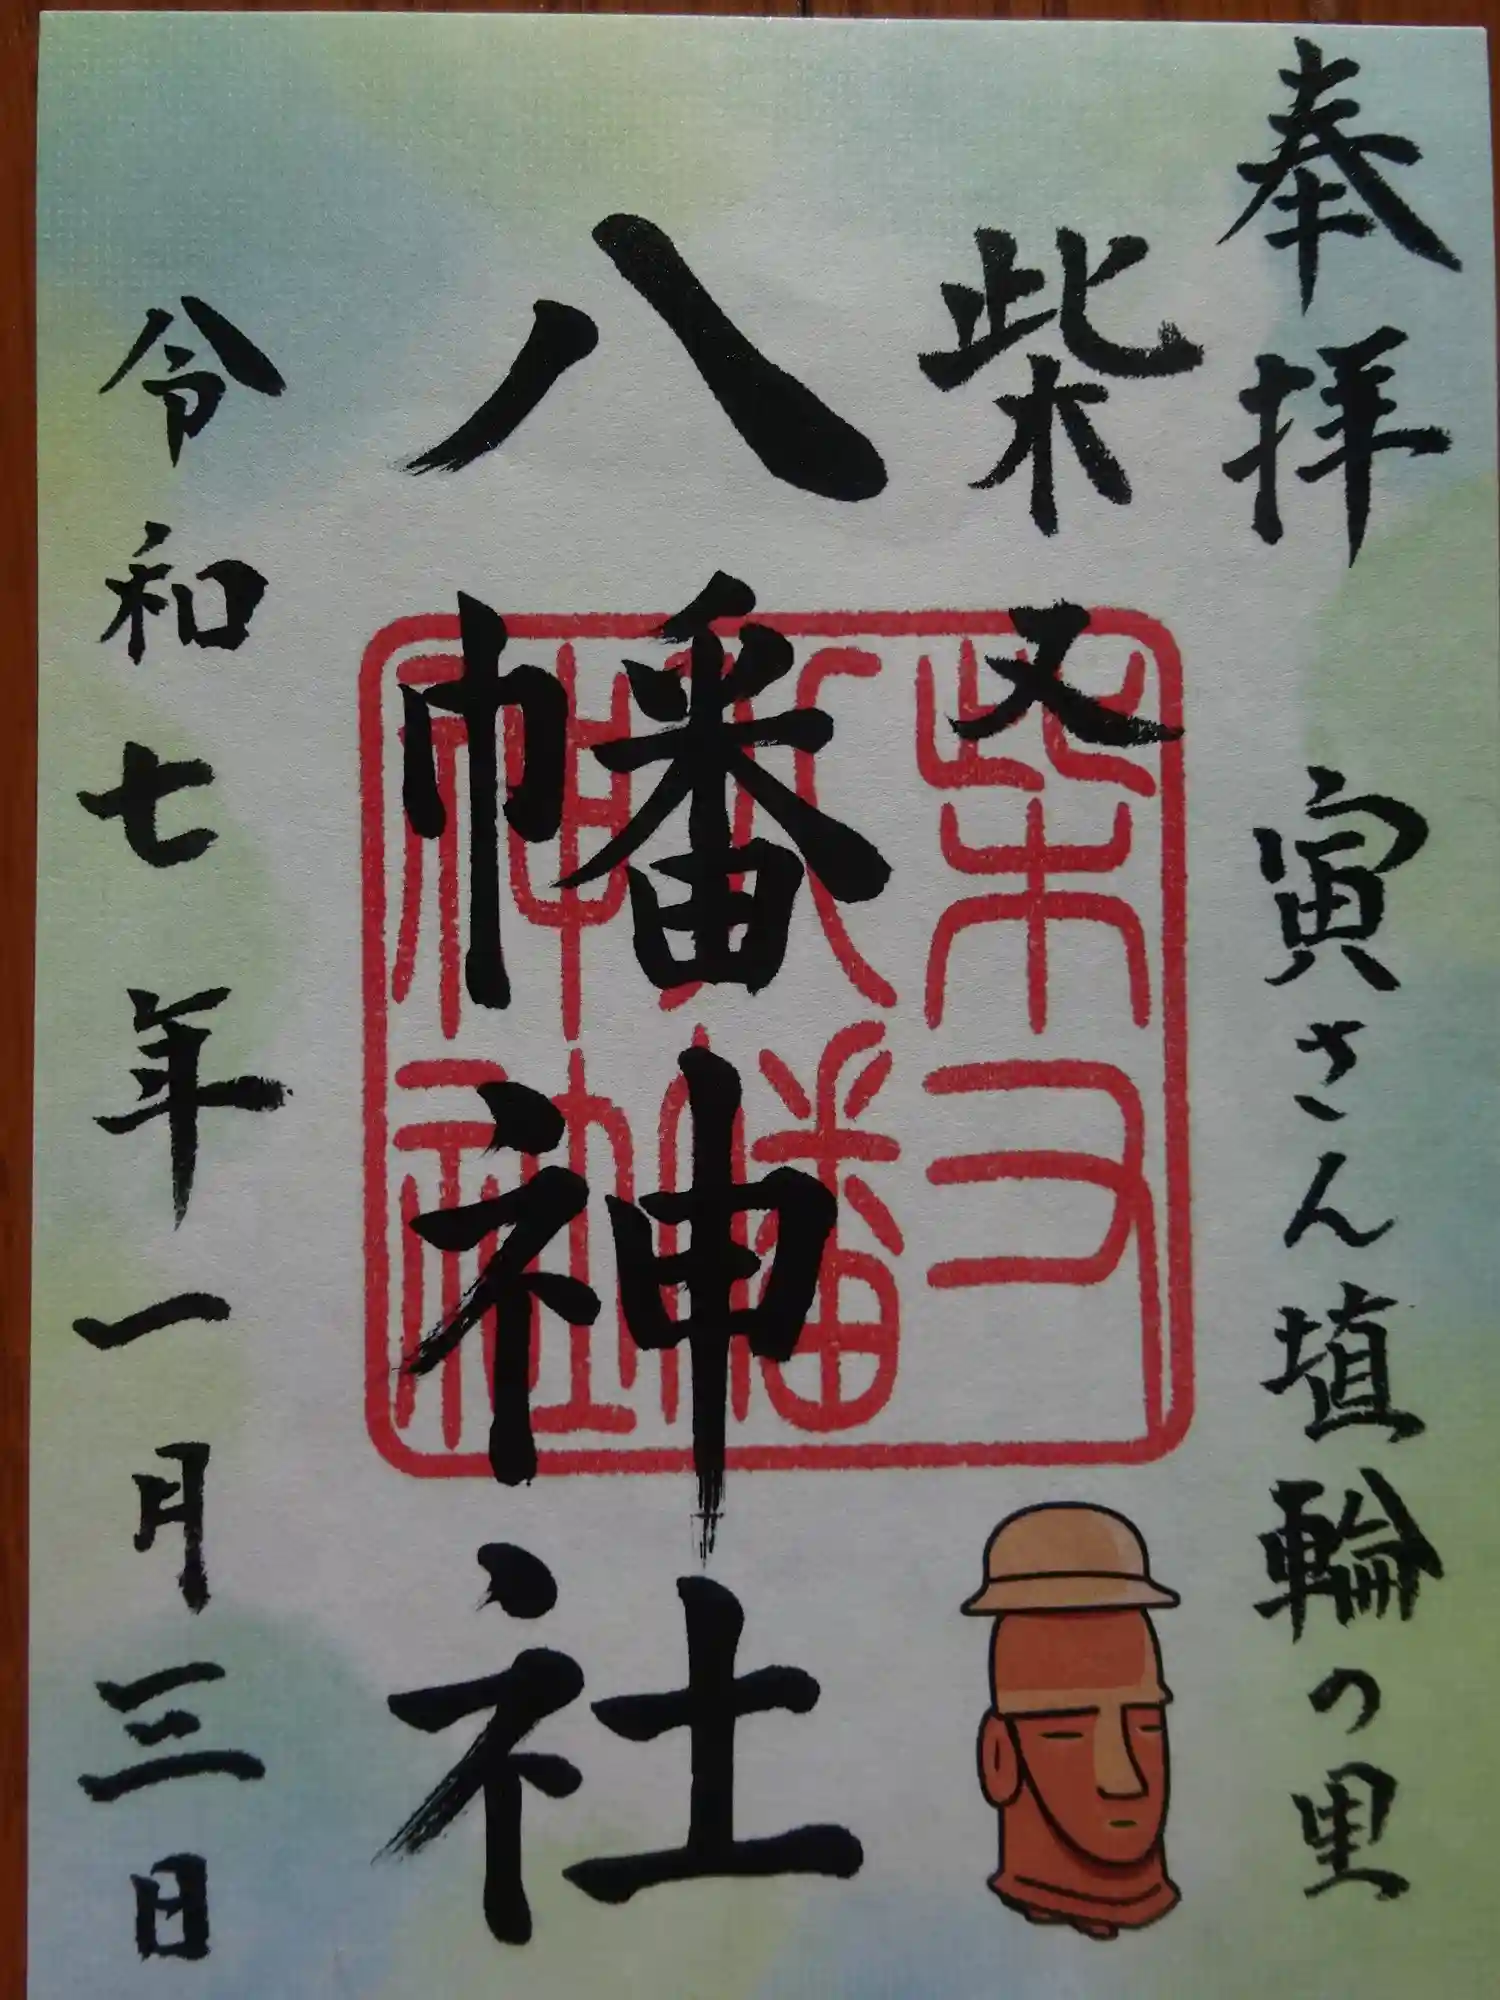 奉拝 寅さん埴輪の里
柴又
八幡神社
令和七年一月三日
柴又
八幡
神社